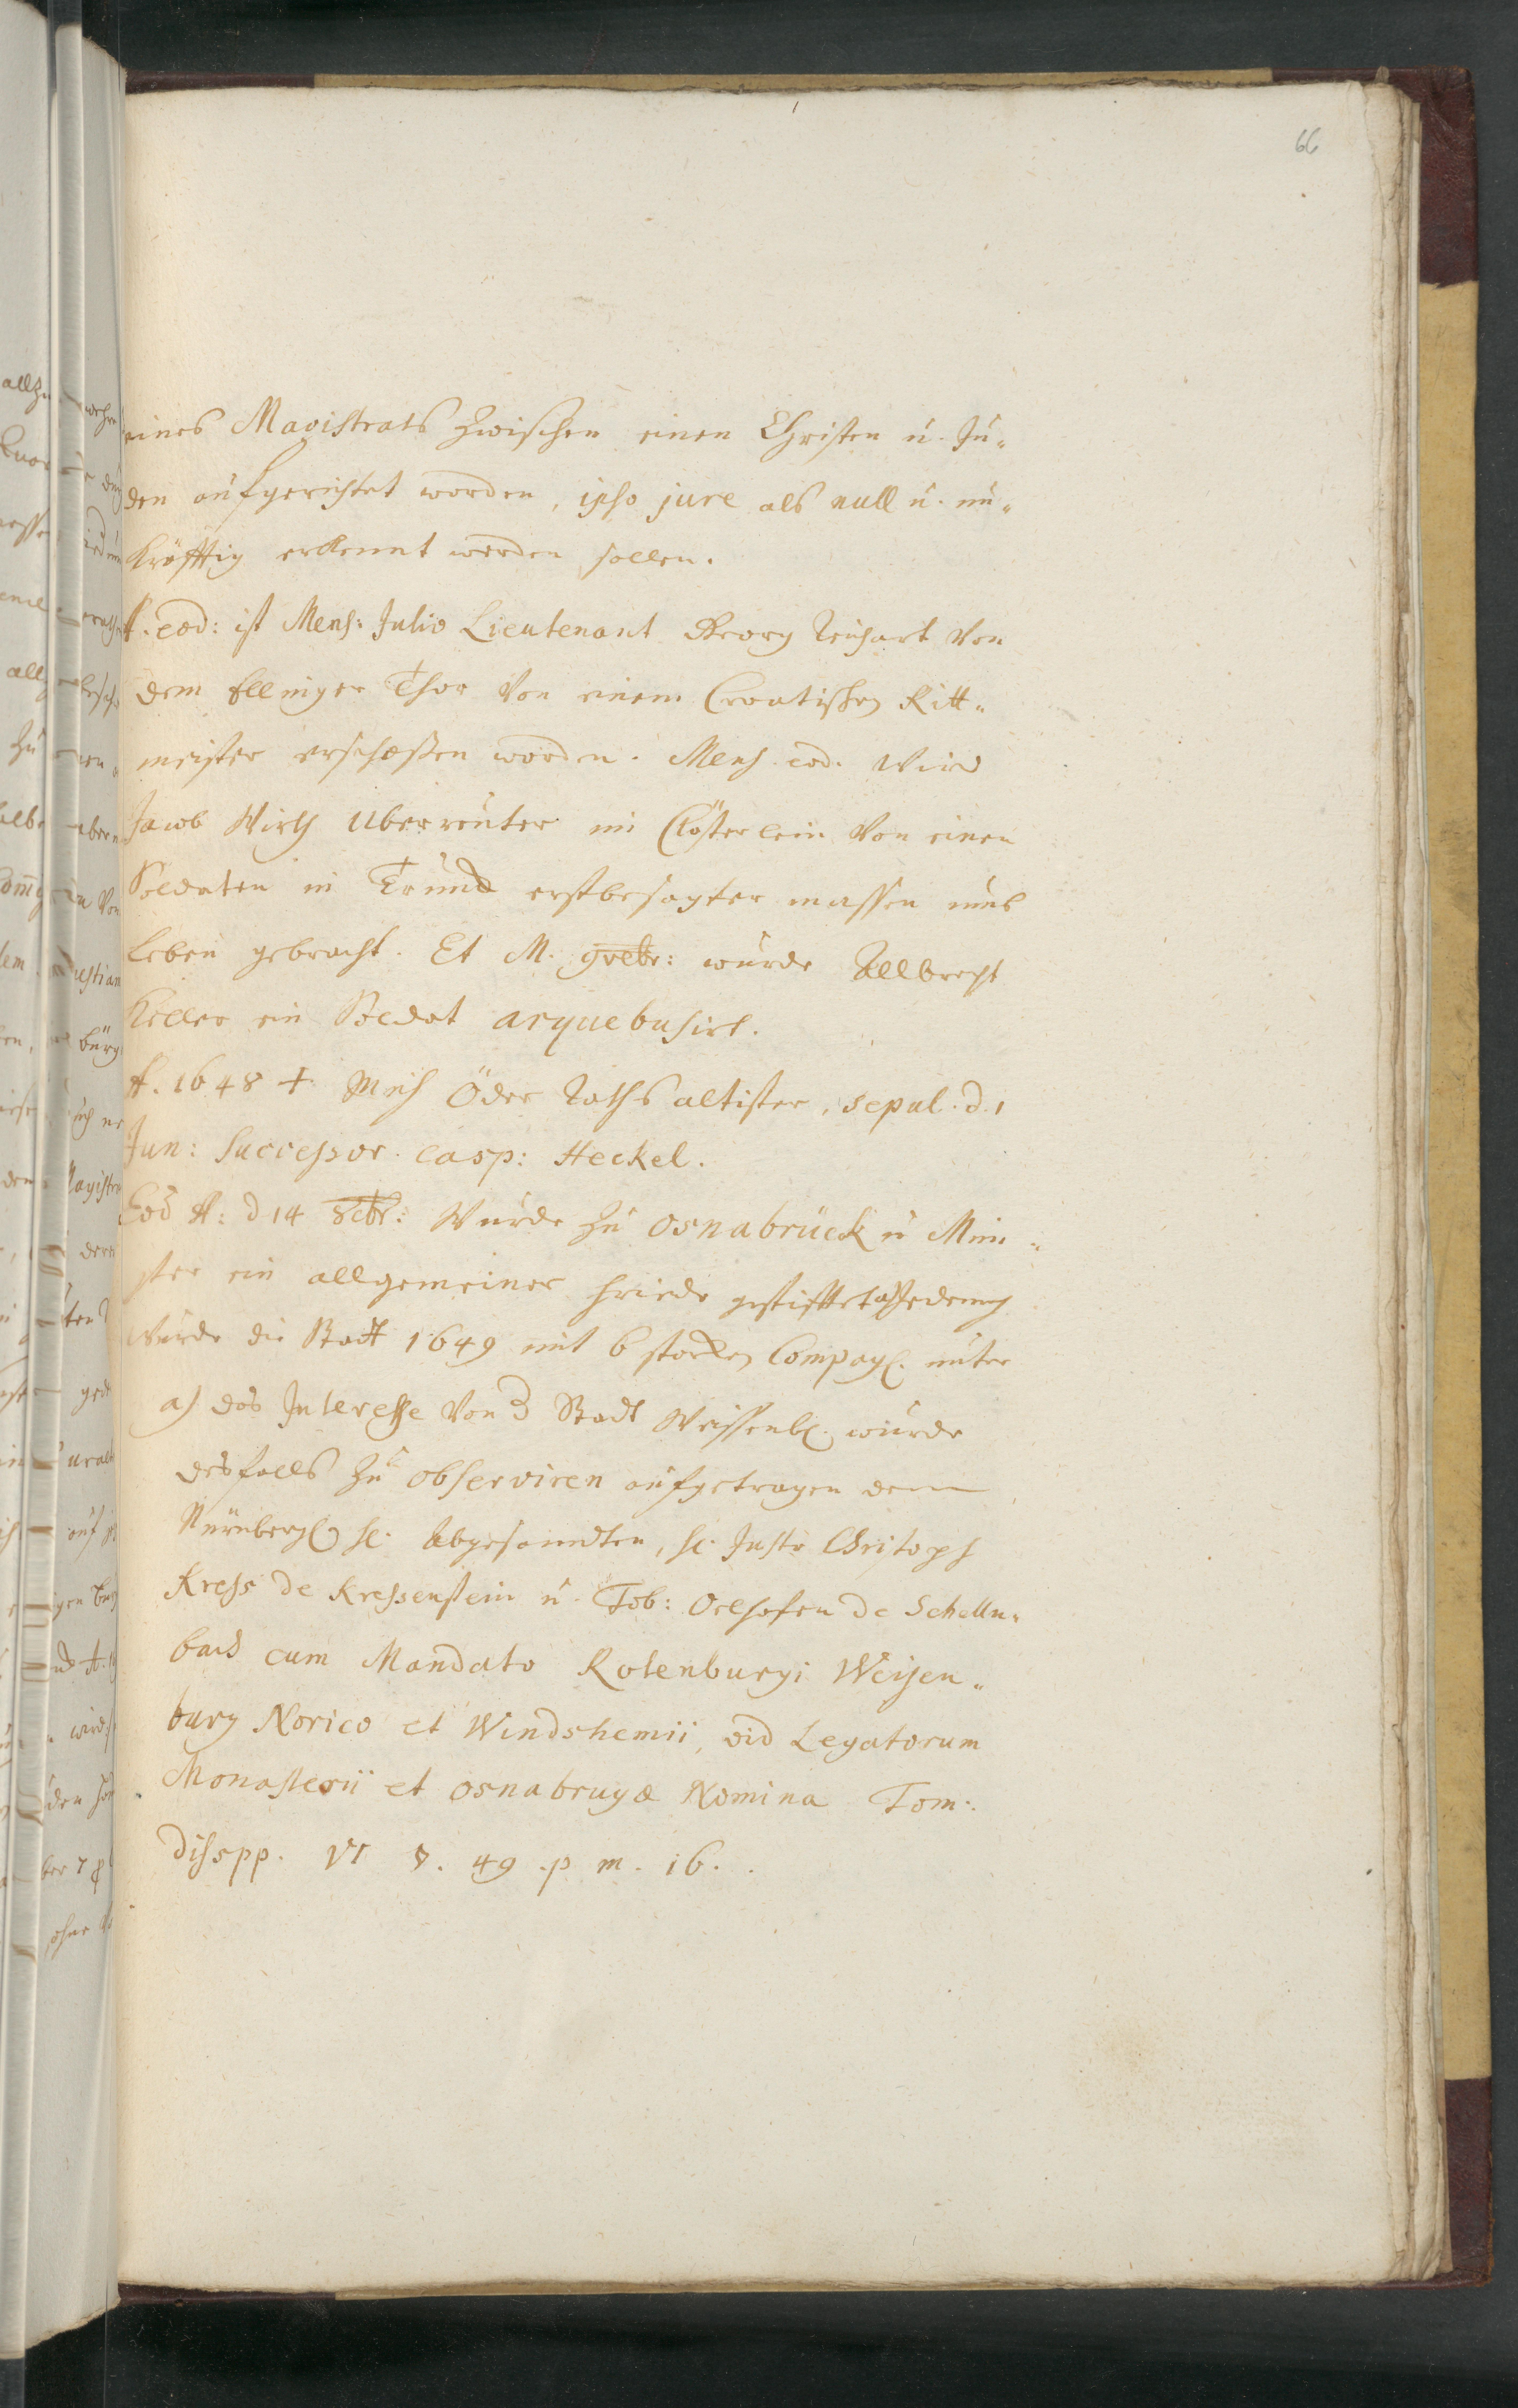 66
eines Magistrats zwischen einen Christen u. Ju-
den aufgerichtet worden, ipso jure als null u. un-
kräfftig erkennt werden sollen.
A. eod: ist Mens: Julio Lieutenant Georg Reichart von
dem Ellinger Thor von einem Croatischen Ritt-
meister erschoßen worden. Mens. eod. wird
Jacob Wirth Uberreuter im Clösterlein von einen
Soldaten in Trunck erstbesagter massen umbs
Leben gebracht. Et M. 9vebr: wurde Allbrecht
Keller ein Soldat arquebusirt.
A. 1648 †. Mich Öder Raths altister, sepul. d. 1
Jun: Successor. Casp: Heckel.
Eod A: d 14 8cbr: wurde zu Osnabrück u Mün-
ster ein allgemeiner Friede gestifftet a)
wurde die Stadt 1649 mit 6 starcken Compag. unter
a) das Interesse von d Stadt Weissenb. wurde
desfalls zu observiren aufgetragen dem
Nürnberg. H. Abgesandten, H. Justo Christoph
Kress de Kressenstein u. Tob: Oelhafen de Schelln-
bach cum Mandato Rotenburgi Weisen-
burg Norico et Windshemii, vid Legatorum
Monasterii et Osnabrugæ Nomina Tom:.
disspp. VI 49 .p m. 16.